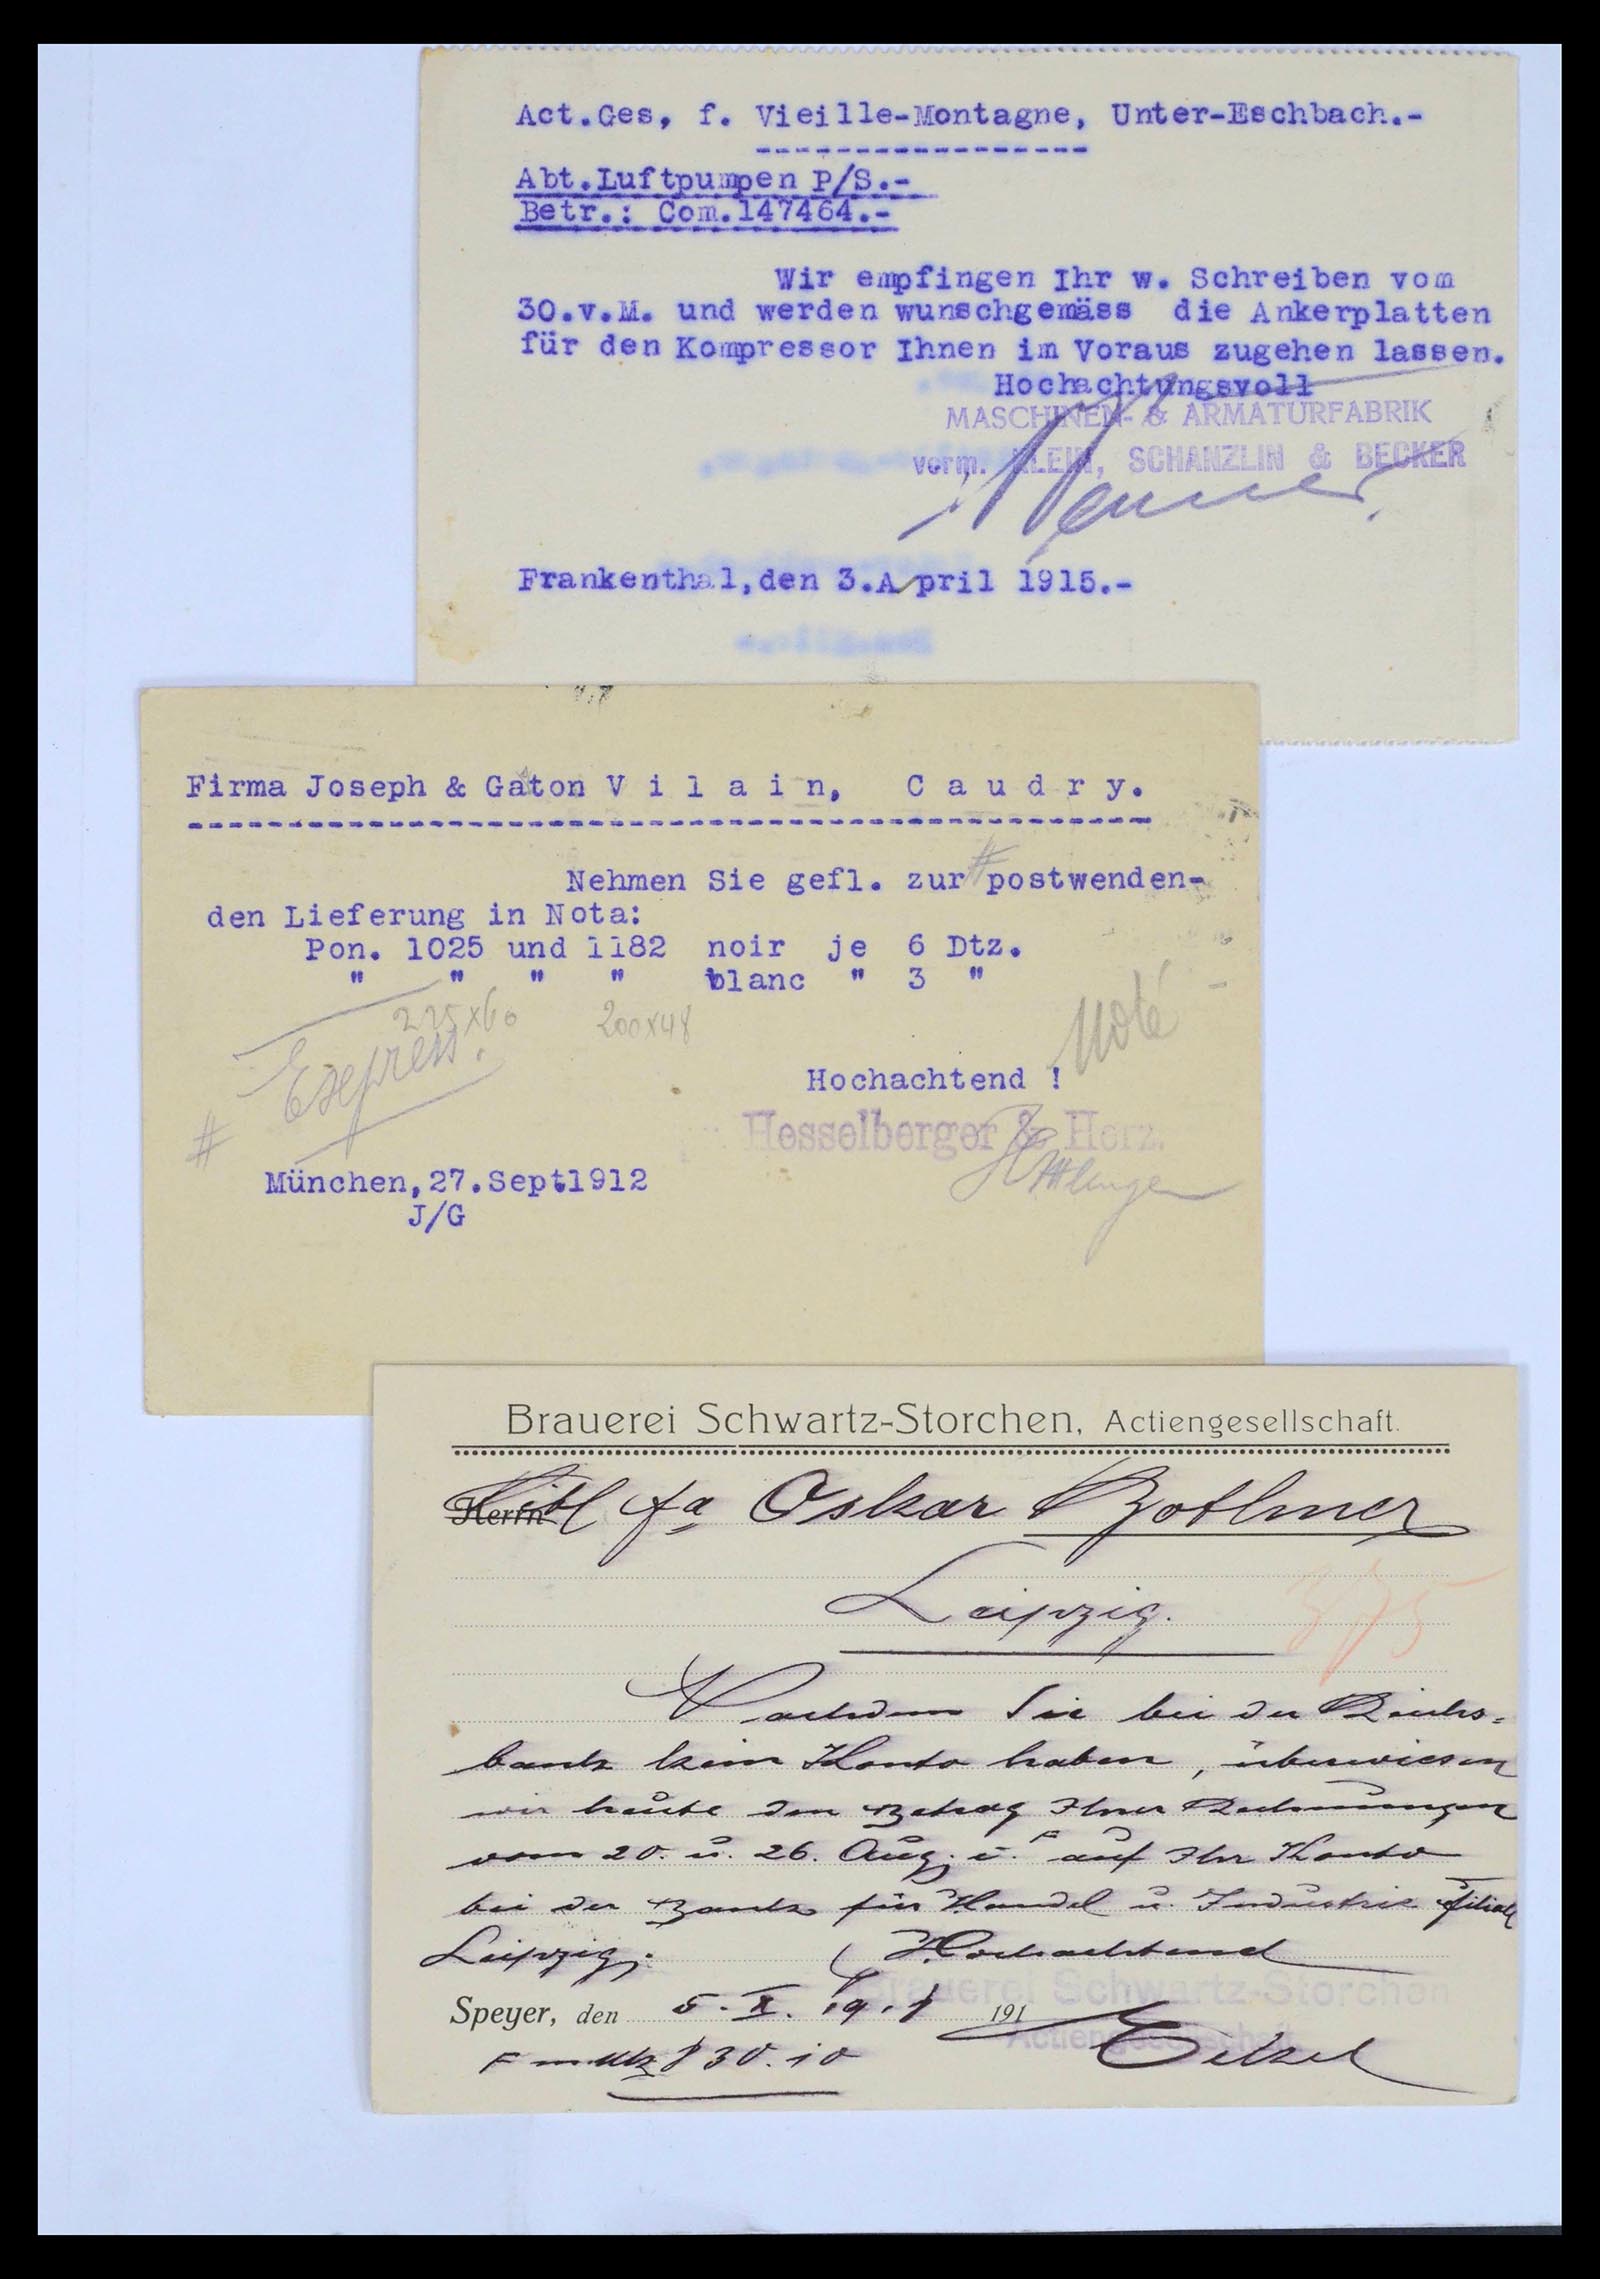 Act.Ges, f. Vieille-Montagne, Unter-Eschbach.-
Abt.Luftpumpen P/S.-
Betr.: Com.147464.-
Wir empfingen Ihr w. Schreiben vom
30.v.M. und werden wunschgemäss die Ankerplatten
für den Kompressor Ihnen im Voraus zugehen lassen.
Hochachtungsvoll
MASCHINEN- & ARMATURFABRIK
vorm. KLEIN, SCHANZLIN & BECKER
Frankenthal,den 3.April 1915.-
Firma Joseph & Gaton V i l a i n, C a u d r y.
Nehmen Sie gefl. zur postwenden-
den Lieferung in Nota:
Pon. 1025 und 1182 noir je 6 Dtz.
" " " " blanc " 3 "
225x60 200x48
Express.
Noté
Hochachtend !
Hesselberger & Herz.
München,27.Sept.1912
J/G
Brauerei Schwartz-Storchen, Actiengesellschaft.
Herrn Titl fa Oskar Bothmer
Leipzig.
375
Nachdem Sie bei der Reichs-
bank kein Konto haben, überwiesen
wir heute den Betrag Ihrer Rechnungen
vom 20. u. 26. Aug. auf Ihr Konto
bei der Bank für Handel u. Industrie Filiale
Leipzig.
Hochachtend
Brauerei Schwartz-Storchen
Actiengesellschaft
Speyer, den 5. X. 1911 191
830.10